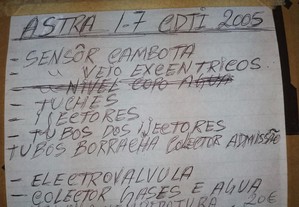 ASTRA 1-7 CDTI 2005
- SENSÔR CAMBOTA
- " VEIO EXCENTRICOS.
- " NIVEL COPO AGUA
- TUCHES
- INJECTORES
- TUBOS DOS INJECTORES
TUBOS BORRACHA COLECTOR ADMISSÃO
- ELECTROVALVULA
- COLECTOR GASES E AGUA
20€